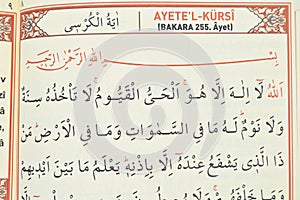 ٩
اٰيَةُ الْكُرْسٖي
AYETE'L-KÜRSÎ
(BAKARA 255. Âyet)
بِسْمِ اللّٰهِ الرَّحْمٰنِ الرَّحٖيمِ
اَللّٰهُ لَٓا اِلٰهَ اِلَّا هُوَۚ اَلْحَيُّ الْقَيُّومُۚ لَا تَأْخُذُهُ سِنَةٌ
وَلَا نَوْمٌۜ لَهُ مَا فِي السَّمٰوَاتِ وَمَا فِي الْاَرْضِۜ مَنْ
ذَا الَّذٖي يَشْفَعُ عِنْدَهُٓ اِلَّا بِاِذْنِهٖۜ يَعْلَمُ مَا بَيْنَ اَيْدٖيهِمْ
وَمَا خَلْفَهُمْۚ وَلَا